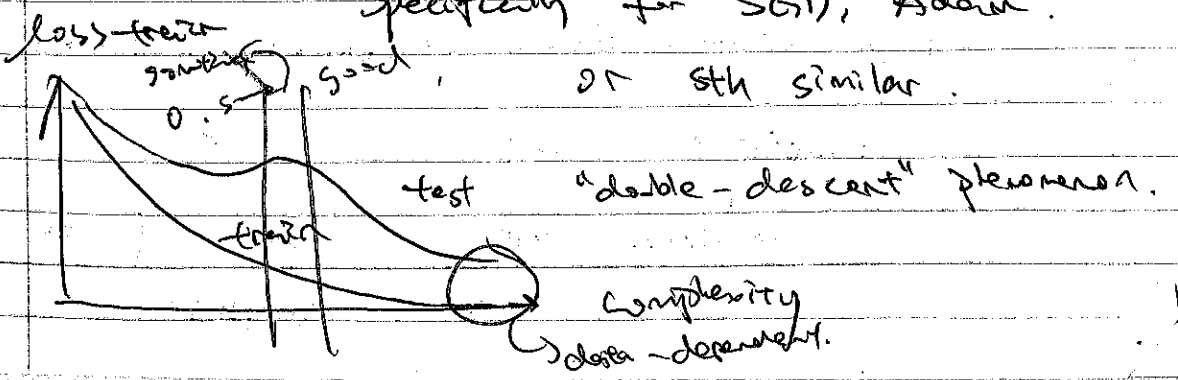 specifically for SGD, Adam.
loss-train
good, or sth similar.
0.5
test "double-descent" phenomenon.
train
complexity
data-dependent.